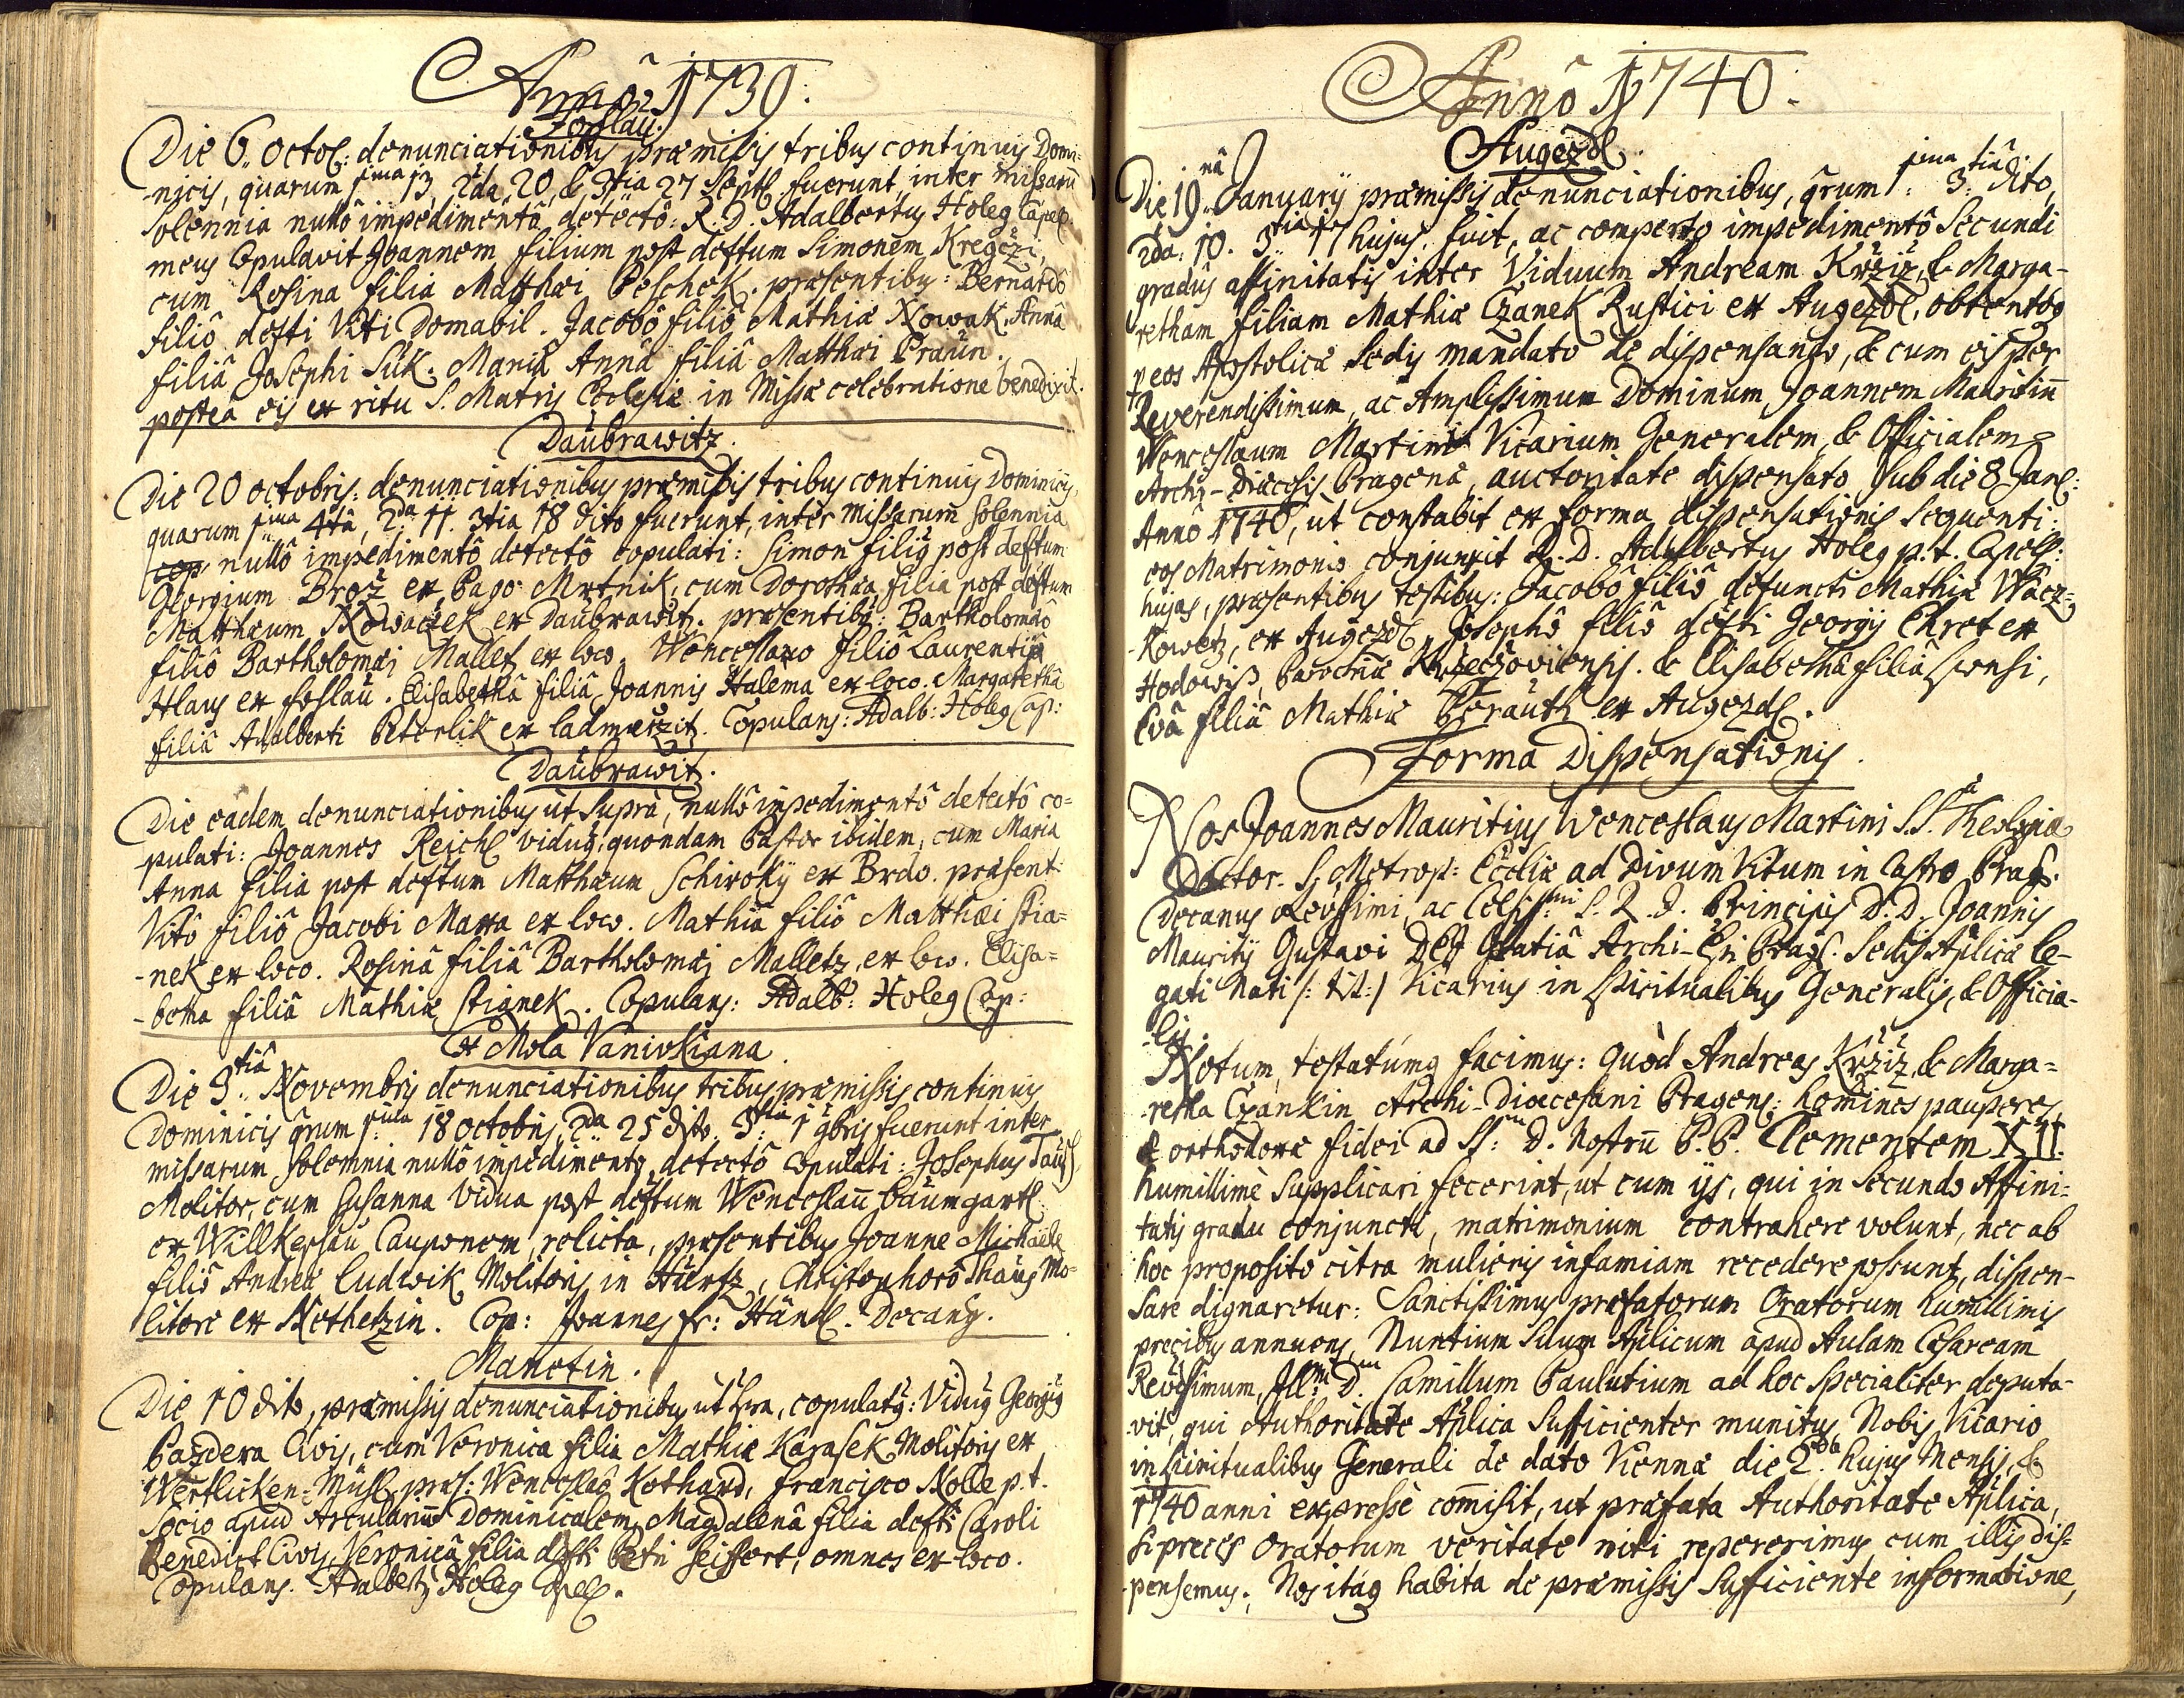 Anno 1739.
Foslau.
Die 6. Octob: denunciationibus praemissis tribus continuis Domi=
-nicis, quarum 1ma 13, 2da 20, & 3tia 27 Septb. fuerunt, inter missarū
solennia nullô impedimentô detectô: R. D. Adalbertus Holeg Capel.
meus Copulavit Joannem filium post deftum Simonem Kregczi,
cum Rosina filia Matthaei Peschek. praesentibus: Bernardô
filiô defti Viti Domabil. Jacobô filiô Mathiae Nowak. Annâ
filiâ Josephi Suk. Mariâ Annâ filiâ Matthaei Praun.
posteâ eis ex ritu S. Matris Ecclesiae in Missae celebratione benedixit.
Daubrawitz.
Die 20 octobris: denunciationibus praemissis tribus continuis Dominicis,
quarum 1ma 4tâ, 2da 11. 3tia 18 dito fuerunt, inter Missarum solennia
nullô impedimentô detectô copulati: Simon filius post deftum
Georgium Brož ex Pago Mrtnik, cum Dorothea filia post deftum
Matthaeum Nowaczek ex Daubrawitz. praesentibus: Bartholomaeô
filiô Bartholomaei Malletz ex loco. Wenceslao filiô Laurentii
Hlaus ex foslau. Elisabethâ filiâ Joannis Halema ex loco. Margarethâ
filiâ Adalberti Peterlik ex Ladmerzitz. Copulans: Adalb: Holeg Cap:
Daubrawitz.
Die eadem denunciationibus ut supra, nullô impedimentô detectô co=
pulati: Joannes Reichl viduus, quondam Pastor ibidem, cum Maria
Anna filia post deftum Matthaeum Schiroky ex Brdo. praesent:
Vitô filiô Jacobi Maxa ex loco. Mathia filiô Matthaei Stia=
-nek ex loco. Rosinâ filiâ Bartholomaei Malletz, ex loco. Elisa=
-betha filiâ Mathiae Stianek. Copulans: Adalb: Holeg Cap:
Ex Mola Vanivskiana.
Die 3tiâ Novembris denunciationibus tribus praemissis continuis
Dominicis qrum 1ma 18 octobris, 2da 25 dito. 3tia 1 9bris fuerunt inter
missarum solemnia nullô impedimento detectô copulati: Josephus Taus
Molitor, cum Susanna Vidua post deftum Wenceslaū Baumgartl
ex Willkeschau Cauponem relicta, praesentibus Joanne Michaele
filiô Andreae Ludwik Molitoris in Hurtz, Christophorô Thaus Mo=
litore ex Nethetzin. Cop: Joannes fr: Hänl. Decanus.
Manetin.
Die 10 dito, praemissis denunciationibus ut supra, copulatus: Viduus Georgius
Pazdera Civis, cum Veronica filia Mathiae Karasek Molitoris ex
Wertlicken-Mühl. praes: Wenceslaô Kothard, Francisco Nolle p. t.
Socio apud Arcularium Dominicalem, Magdalenâ filia defti Caroli
Benedict Civis, Veronicâ filia defti Petri Seiffert, omnes ex loco.
Copulans. Adalbertus Holeg Capell.
Anno 1740.
Augezdl
Die 19nâ Januarij praemissis denunciationibus, qrum 1ma 3tiâ dito,
2da: 10. 3tia 17 hujus. fuit, ac comperto impedimentô Secundi
gradûs affinitatis inter Viduum Andream Krziz, & Marga-
retham filiam Mathiae Czanek Rustici ex Augezdl, obtentoq
p eos Apostolicae Sedis mandato de dispensando, & cum eis per
Reverendissimum, ac Amplissimum Dominum Joannem Mauritiū
Wenceslaum Martini Vicarium Generalem, & Officialem
Archi-Dioecesis Pragenae, auctoritate dispensato sub die 8 Janl:
Annô 1740, ut constabit ex forma dispensationis sequenti:
eos Matrimonio conjunxit R. D. Adalbertus Holeg p. t. Capell:
hujas, praesentibus testibus: Jacobô filiô defuncti Mathiae Wacz=
-kowetz, ex Augezdl, Josephô filiô defti Georgij Chret ex
Hodowiss, Parochiae Kralczoviensis. & Elisabethâ filiâ sponsi,
Evâ filiâ Mathiae Berauth ex Augezdl.
Forma Dispensationis.
Nos Joannes Mauritius Wenceslaus Martini S.S. Theologiae
Doctor. S. Metrop: Eccliae ad Divum Vitum in Castro Prag.
Decanus Revssimi, ac Celsissmi S. R. I. Principis D. D. Joannis
Mauritij Gustavi DEI Gratiâ Archi-Epi Prag. Sedis Aplicae Le-
gati Nati /: tit: / Vicarius in Spiritualibus Generalis, & Officia-
-lis.
Notum, testatumq facimus: Quòd Andreas Krziz, & Marga=
-retha Czankin Archi-Dioecesani Pragens: homines pauperes,
& orthodoxae fidei ad SS:mum D. Nostrū P. P. Clementem XII.
humillimè supplicari fecerint, ut cum ijs, qui in secundo Affini=
tatis gradu conjuncti, matrimonium contrahere volunt, nec ab
hoc proposito citra mulieris infamiam recedere possunt, dispen-
sare dignaretur: Sanctissimus praefatorum Oratorum humillimis
precibus annuens, Nuntium suum Aplicum apud Aulam Caesaream
Revdssimum, Ill:mum D.num Camillum Paulutium ad hoc specialiter deputa-
-vit, qui Authoritate Aplica sufficienter munitus, Nobis Vicario
in Spiritualibus Generali de dato Viennae die 2da hujus Mensis, &
1740 anni expressè comisit, ut praefata Authoritate Aplica,
si preces Oratorum veritate niti repererimus cum illis dis=
-pensemus. Nos itaq habita de praemissis sufficiente informatione,